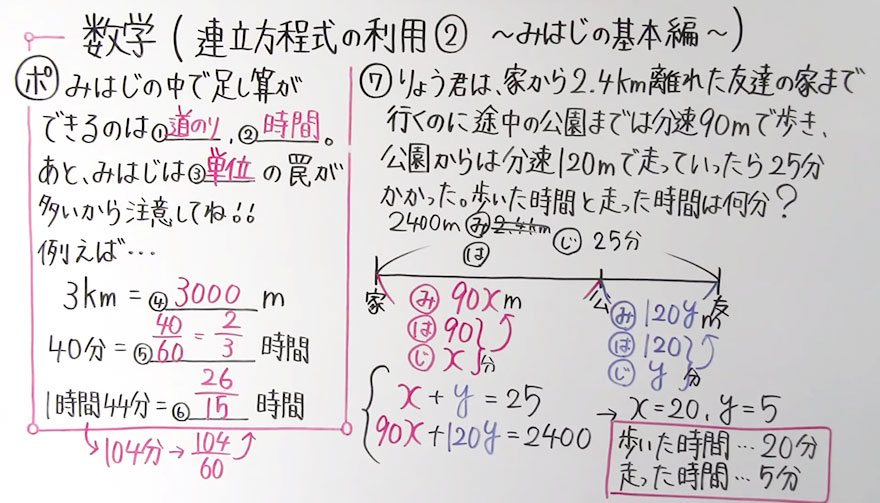 数学(連立方程式の利用② 〜みはじの基本編〜)
ポ みはじの中で足し算が
できるのは①道のり,②時間。
あと、みはじは③単位の罠が
多いから注意してね!!
例えば…
3km=④3000m
40分=⑤40/60=2/3時間
1時間44分=⑥26/15時間
→104分→104/60
⑦りょう君は、家から2.4km離れた友達の家まで
行くのに途中の公園までは分速90mで歩き、
公園からは分速120mで走っていったら25分
かかった。歩いた時間と走った時間は何分?
2400m み 2.4km
は
じ 25分
家 公 友
み 90xm
は 90
じ x 分
み 120ym
は 120
じ y 分
x+y=25
90x+120y=2400
→x=20,y=5
歩いた時間…20分
走った時間…5分